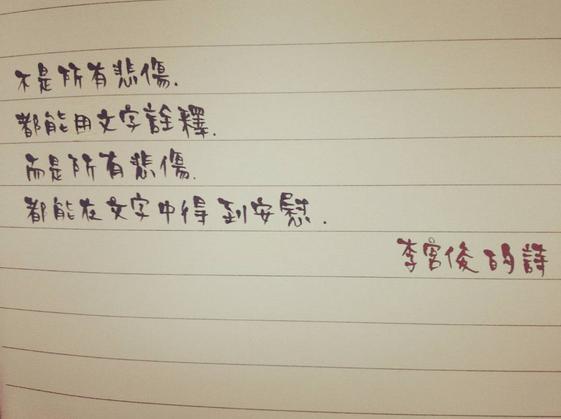 不是所有悲傷.
都能用文字詮釋.
而是所有悲傷.
都能在文字中得到安慰.
李宮俊的詩